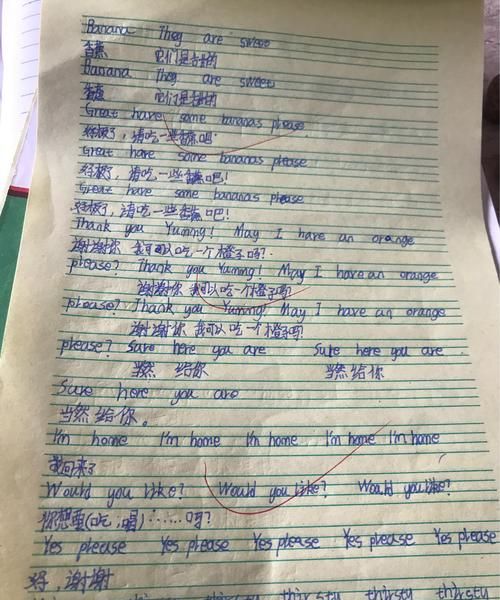 Banana They are sweet
香蕉 它们是甜的
Banana They are sweet
香蕉 它们是甜的
Great have some bananas please
好极了，请吃一些香蕉吧。
Great have some bananas please
好极了，请吃一些香蕉吧！
Great have some bananas please
好极了，请吃一些香蕉吧！
Thank you Yummy! May I have an orange
谢谢你 我可以吃一个橙子吗？
please? Thank you Yummy! May I have an orange
谢谢你 我可以吃一个橙子吗？
please? Thank you Yummy! May I have an orange
谢谢你 我可以吃一个橙子吗？
please? Sure here you are Sure here you are
当然 给你 当然给你
Sure here you are
当然给你。
I'm home I'm home I'm home I'm home I'm home
我回来了
Would you like? Would you like? Would you like?
你想要(吃，喝)……吗？
Yes please Yes please Yes please Yes please Yes please
好，谢谢
thirsty thirsty thirsty